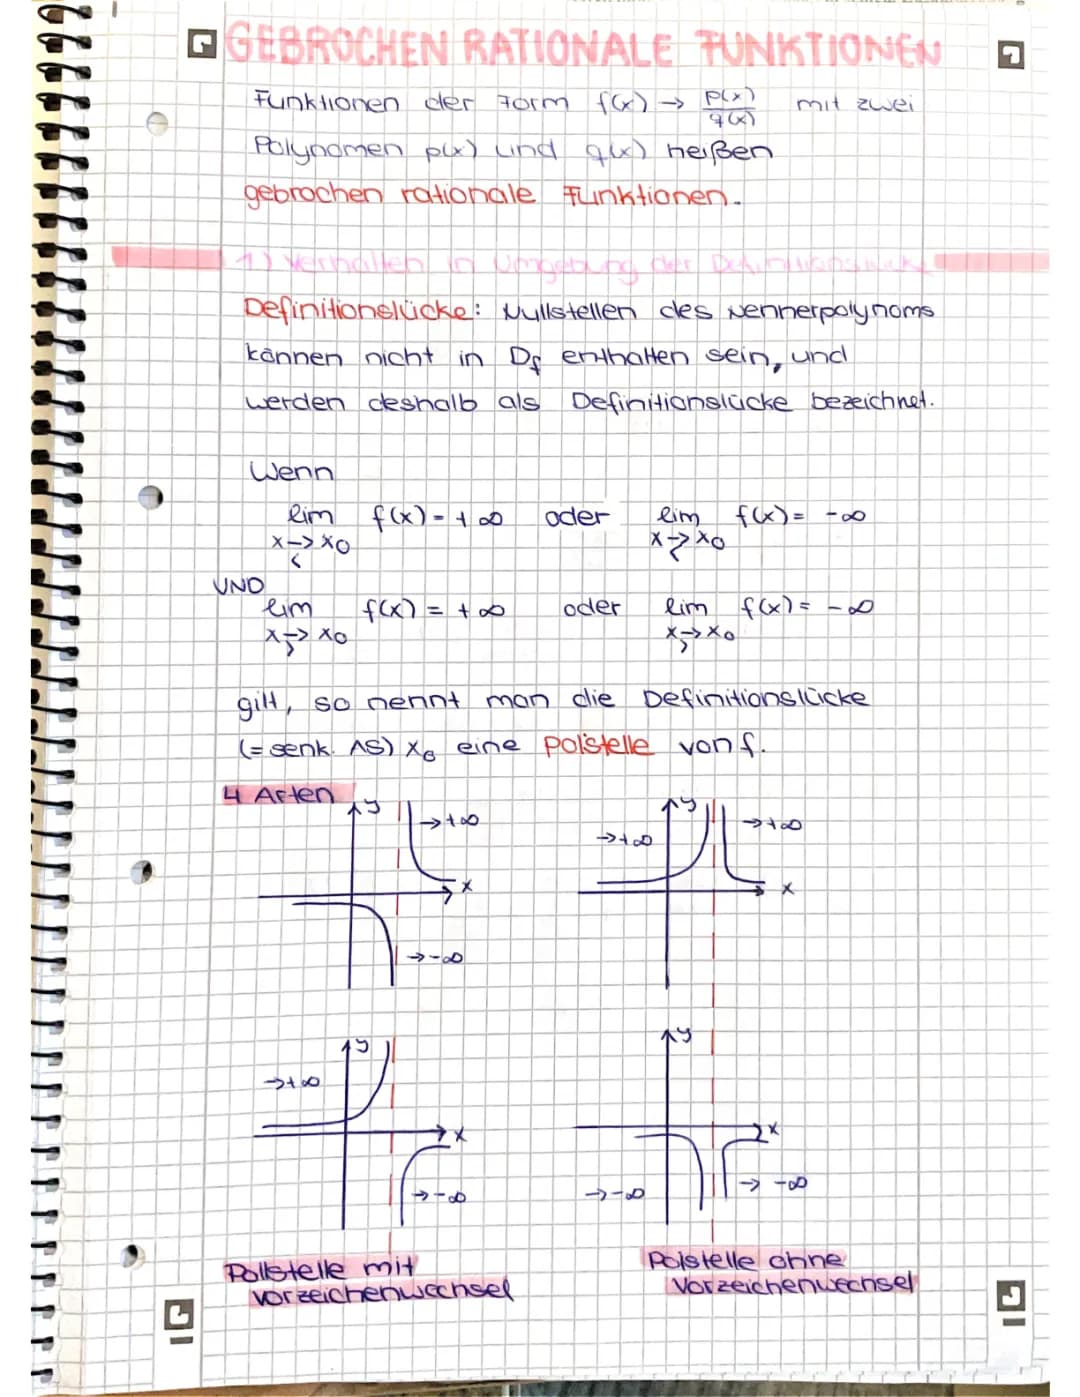 GEBROCHEN RATIONALE FUNKTIONEN
Funktionen der Form f(x) → p(x)/q(x) mit zwei
Polynomen p(x) und q(x) heißen
gebrochen rationale Funktionen.
1) Verhalten in Umgebung der Definitionslücke
Definitionslücke: Nullstellen des Nennerpolynoms
können nicht in Df enthalten sein, und
werden deshalb als Definitionslücke bezeichnet.
Wenn
lim f(x) = +∞ oder lim f(x) = -∞
x→x₀ x→x₀
< <
UND
lim f(x) = +∞ oder lim f(x) = -∞
x→x₀ x→x₀
> >
gilt, so nennt man die Definitionslücke
(= senk. AS) x₀ eine Polstelle von f.
4 Arten
y →+∞ x →-∞
y →+∞ →+∞ x
y →+∞ x →-∞
y x →-∞ → -∞
Pollstelle mit
Vorzeichenwechsel
Polstelle ohne
Vorzeichenwechsel